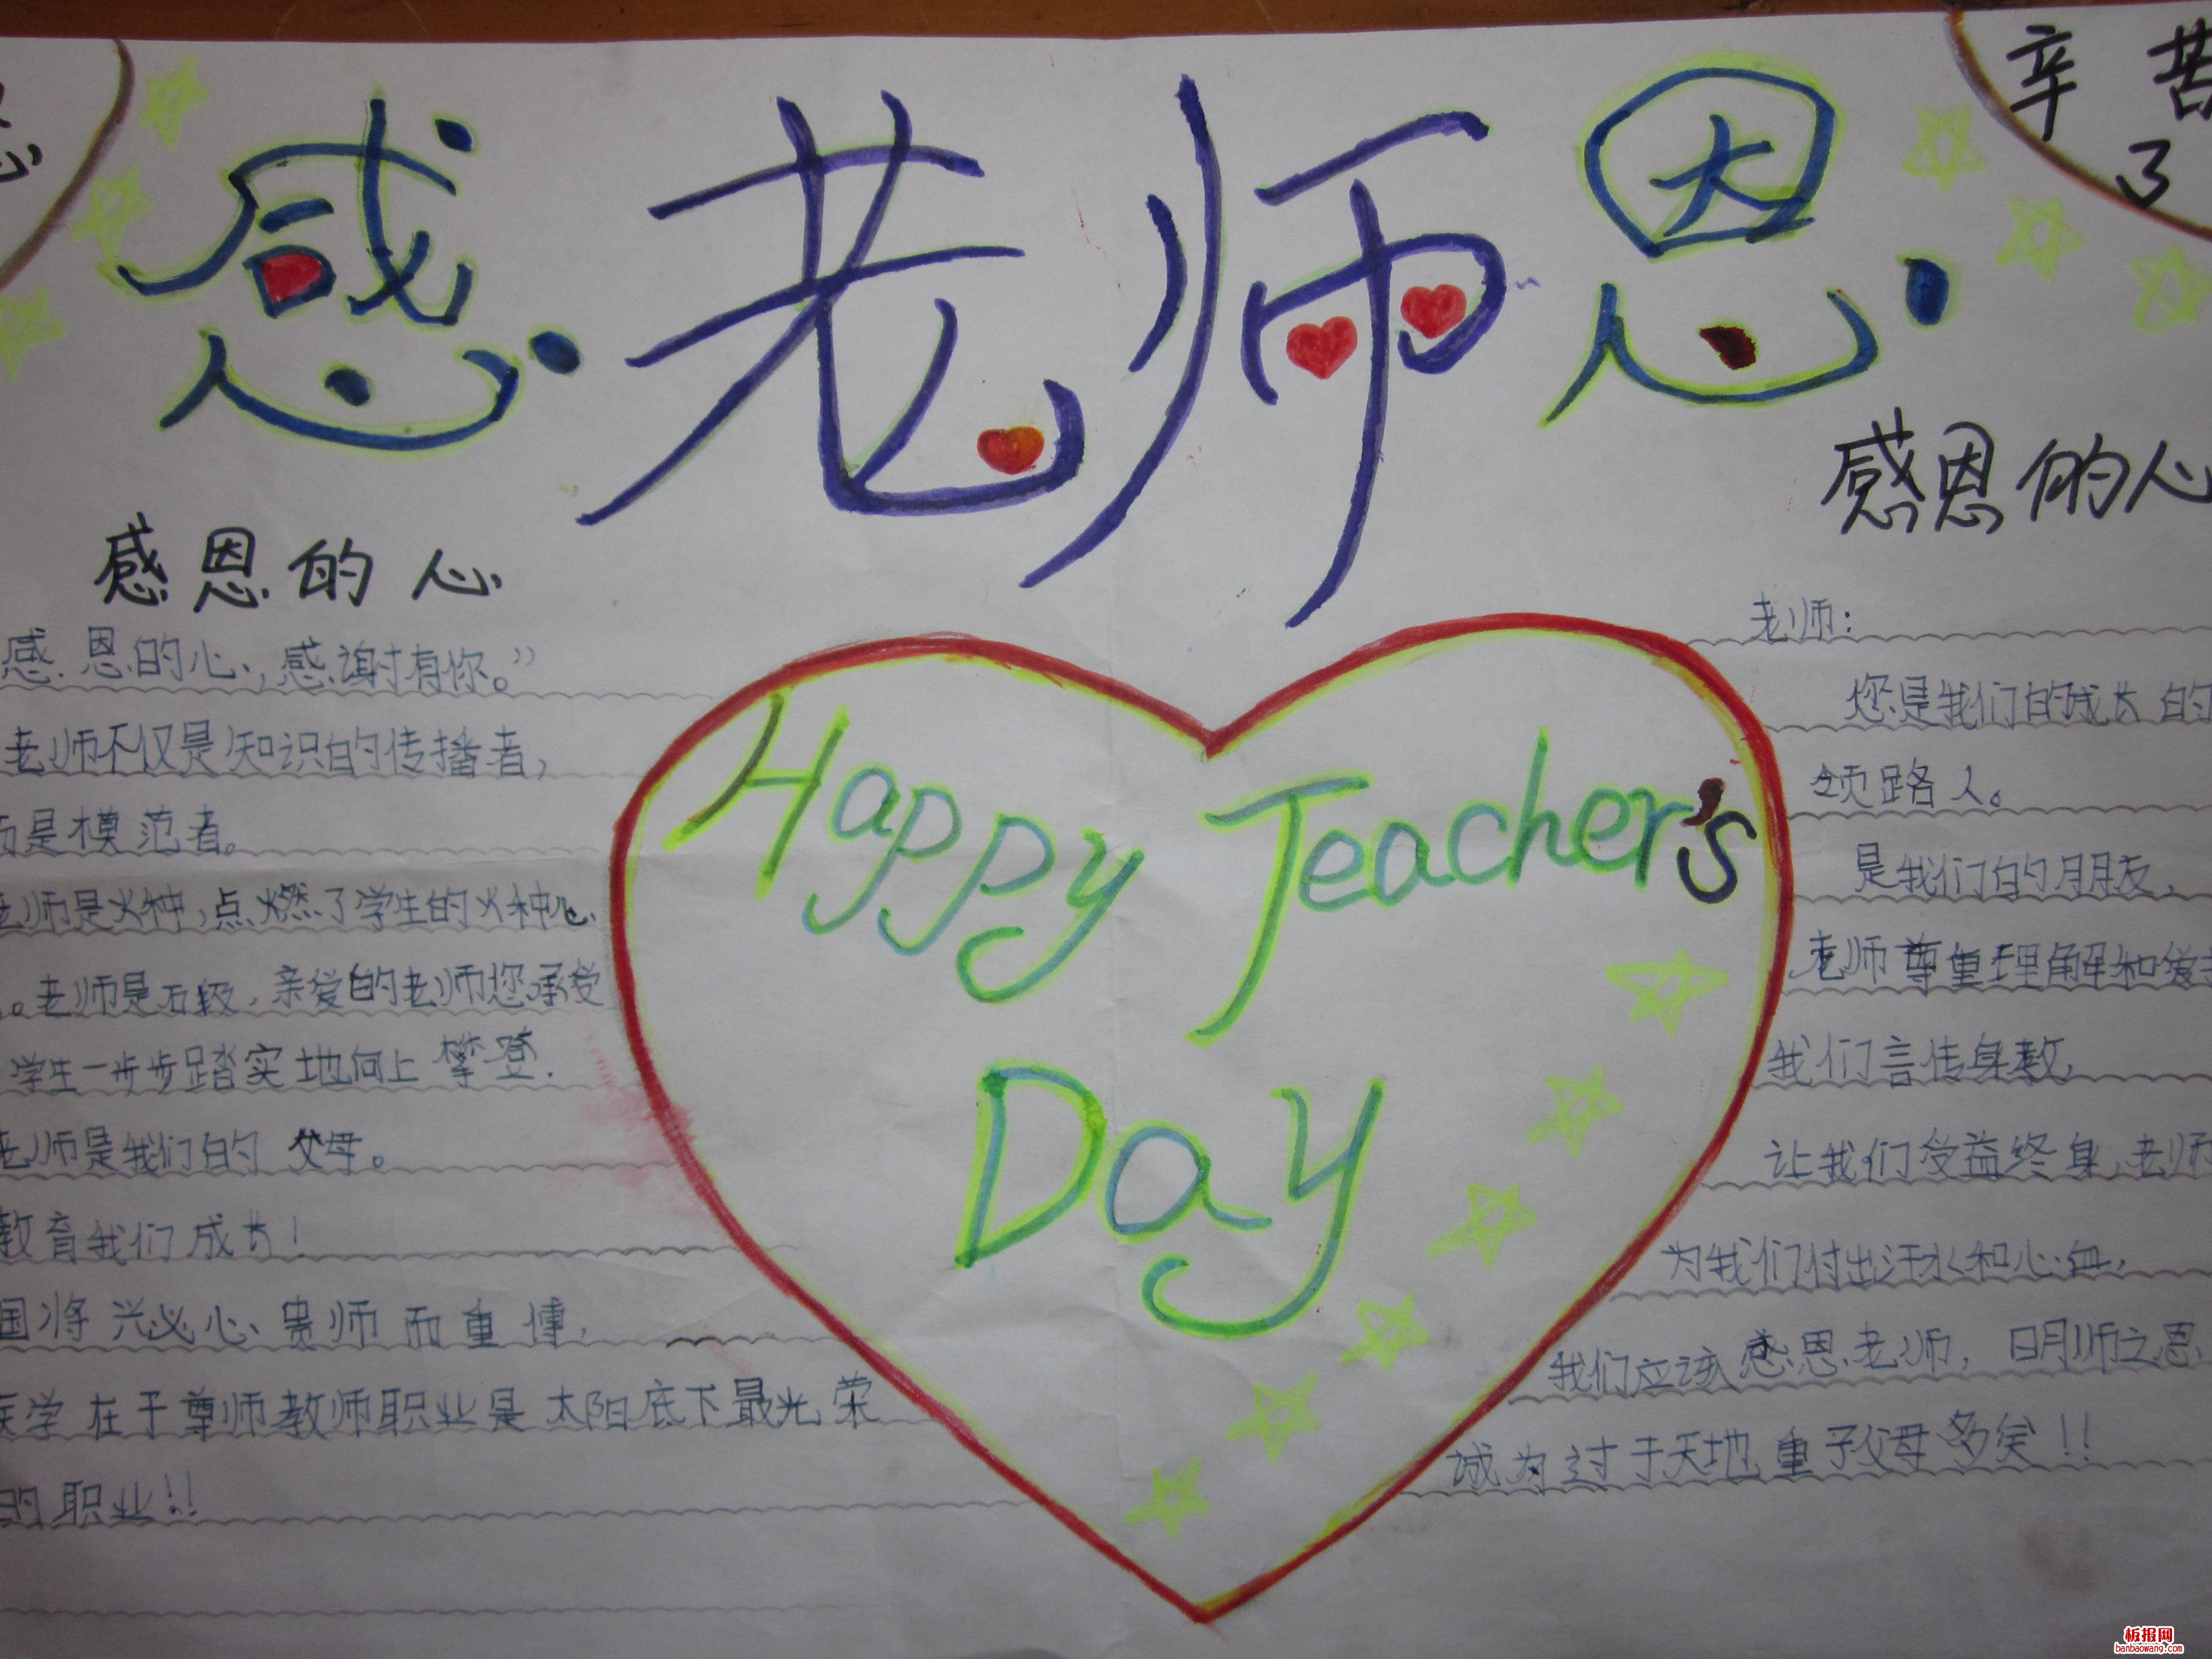 辛苦
了
感老师恩
感恩的心
感恩的心,感谢有你。”
老师不仅是知识的传播者,
而是模范者。
老师是火种,点燃了学生的火种心
。老师是石级,亲爱的老师您承受
学生一步步踏实地向上攀登.
老师是我们的父母。
教育我们成长!
国将兴必心贵师而重傅,
医学在于尊师教师职业是太阳底下最光荣
的职业!!
Happy Teacher's
Day
感恩的心
老师:
您是我们的成长的
领路人。
是我们的朋友,
老师尊重理解和爱
我们言传身教,
让我们受益终身,老师
为我们付出汗水和心血,
我们应该感恩老师,明师之恩
诚为过于天地重子父母多矣!!
板报网
banbaowang.com